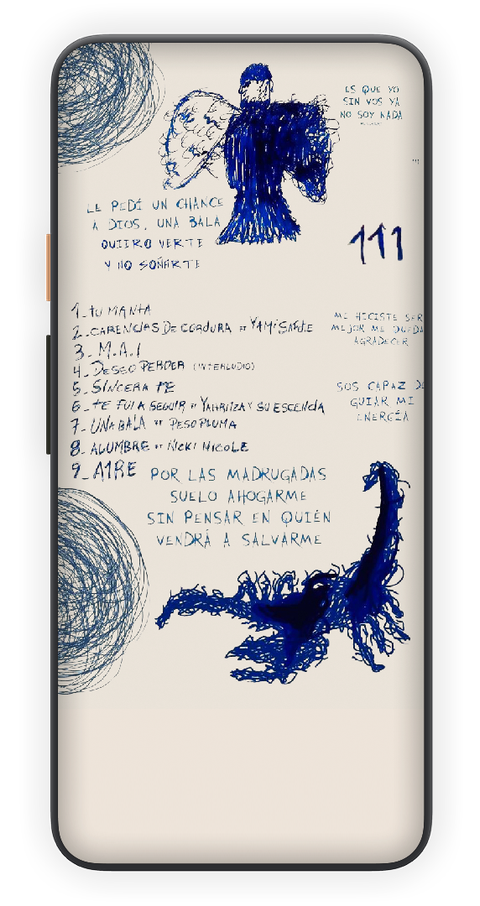 ES QUE YO
SIN VOS YA
NO SOY NADA
LE PEDÍ UN CHANCE
A DIOS, UNA BALA
QUIERO VERTE
Y NO SOÑARTE
111
1_ tU MANTA
2_ CARENCIAS DE CORDURA FT YAMI SAFDIE
3_ M.A.I
4_ DESEO PERDER (INTERLUDIO)
5_ SINCERA FE
6_ tE FUI A SEGUIR FT YAHRITZA Y SU ESCENCIA
7_ UNA BALA FT PESO PLUMA
8_ ALUMBRE FT NICKI NICOLE
9_ AIRE
ME HICISTE SER
MEJOR ME QUEDA
AGRADECER
SOS CAPAZ DE
GUIAR MI
ENERGÍA
POR LAS MADRUGADAS
SUELO AHOGARME
SIN PENSAR EN QUIÉN
VENDRÁ A SALVARME